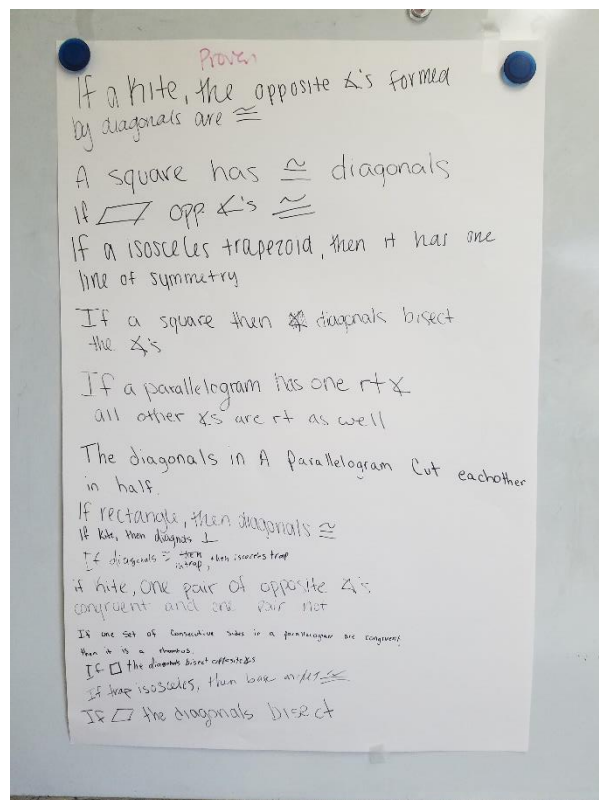 Proven
If a kite, the opposite ∡'s formed
by diagonals are ≅
A square has ≅ diagonals
If ▱ opp. ∡'s ≅
If a isosceles trapezoid, then it has one
line of symmetry
If a square then diagonals bisect
the ∡'s
If a parallelogram has one rt ∡
all other ∡s are rt as well
The diagonals in A Parallelogram Cut eachother
in half.
If rectangle, then diagonals ≅
If kite, then diagnals ⊥
If diagonals ≅ then
in trap, then isosceles trap
if kite, one pair of opposite ∡'s
congruent and one pair not
If one set of consecutive sides in a parallelogram are congruent
then it is a rhombus.
If □ the diagonals bisect opposite ∡s
If trap isosceles, then base ≅
If ▱ the diagonals bisect